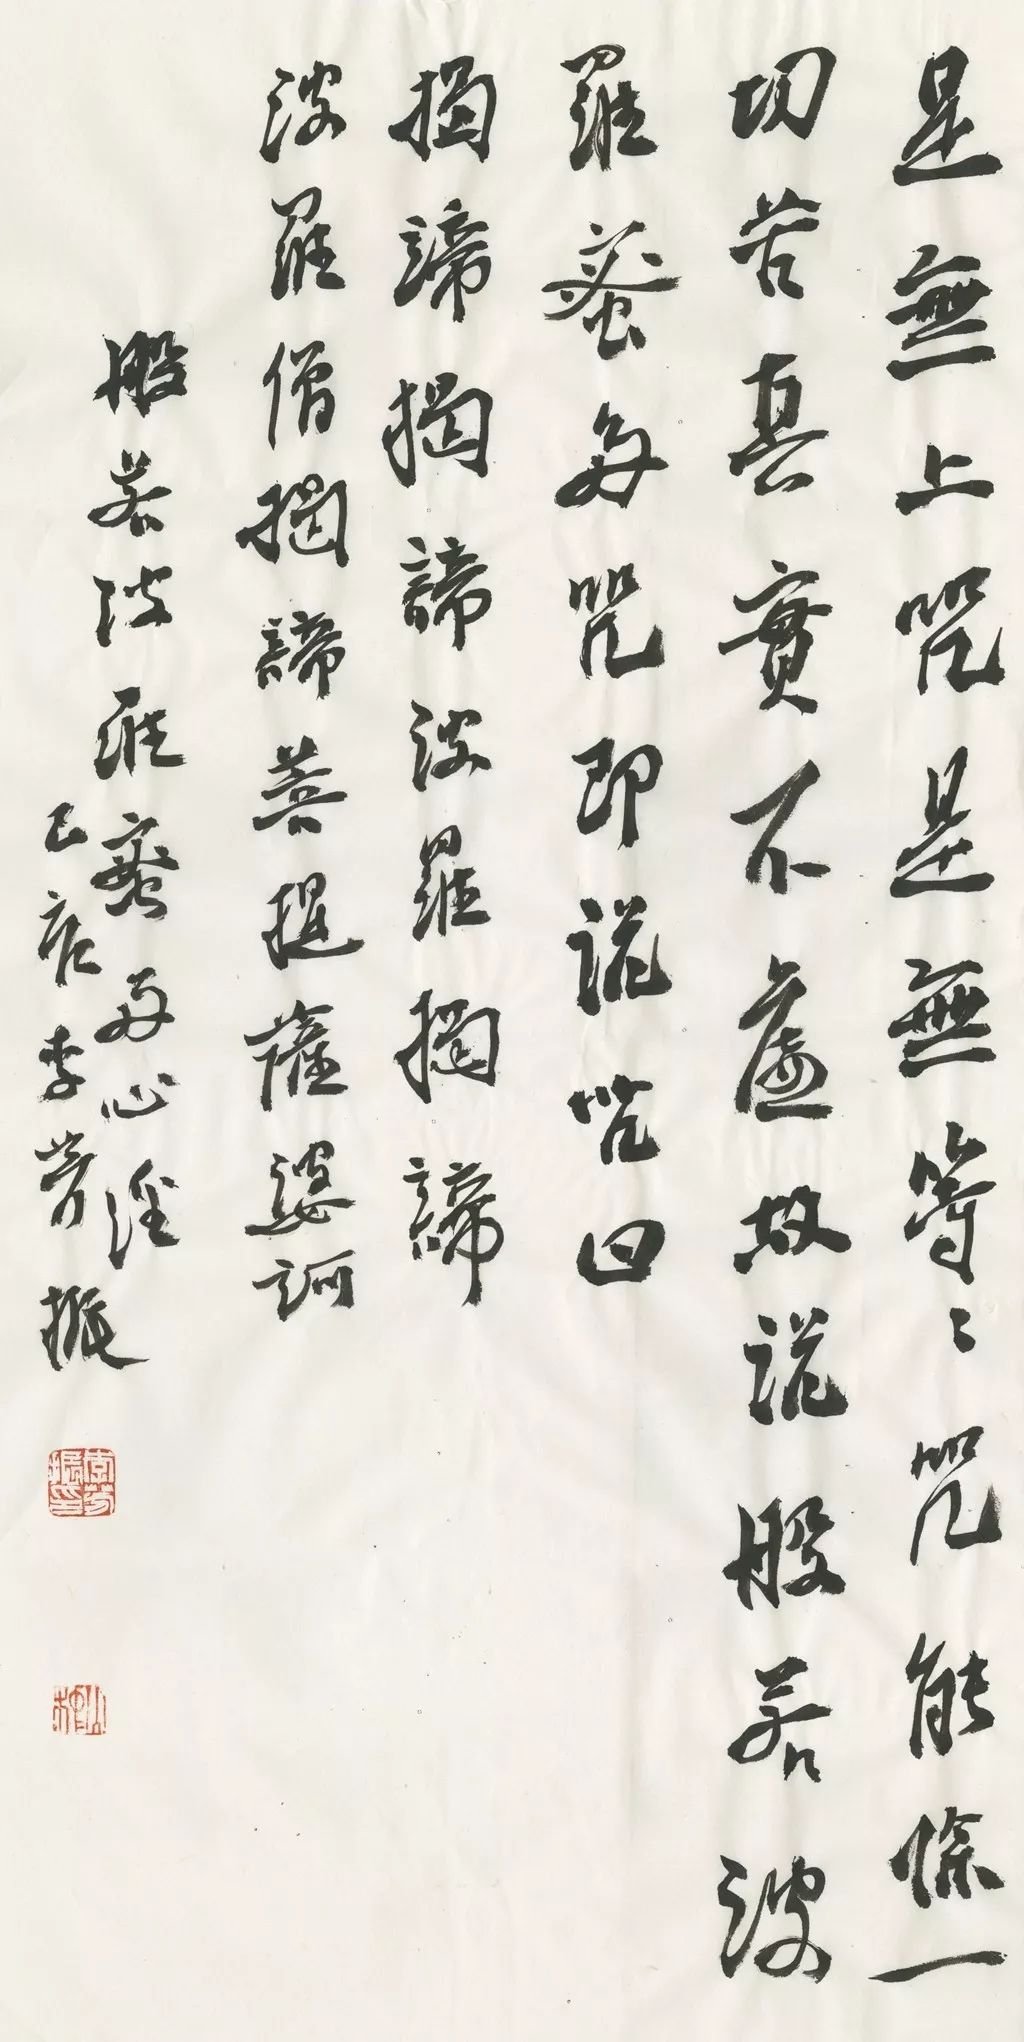 是無上咒是無等々咒能除一
切苦真實不虛故說般若波
羅蜜多咒即說咒曰
揭諦揭諦波羅揭諦
波羅僧揭諦菩提薩婆訶
般若波羅蜜多心經
己亥李芳振